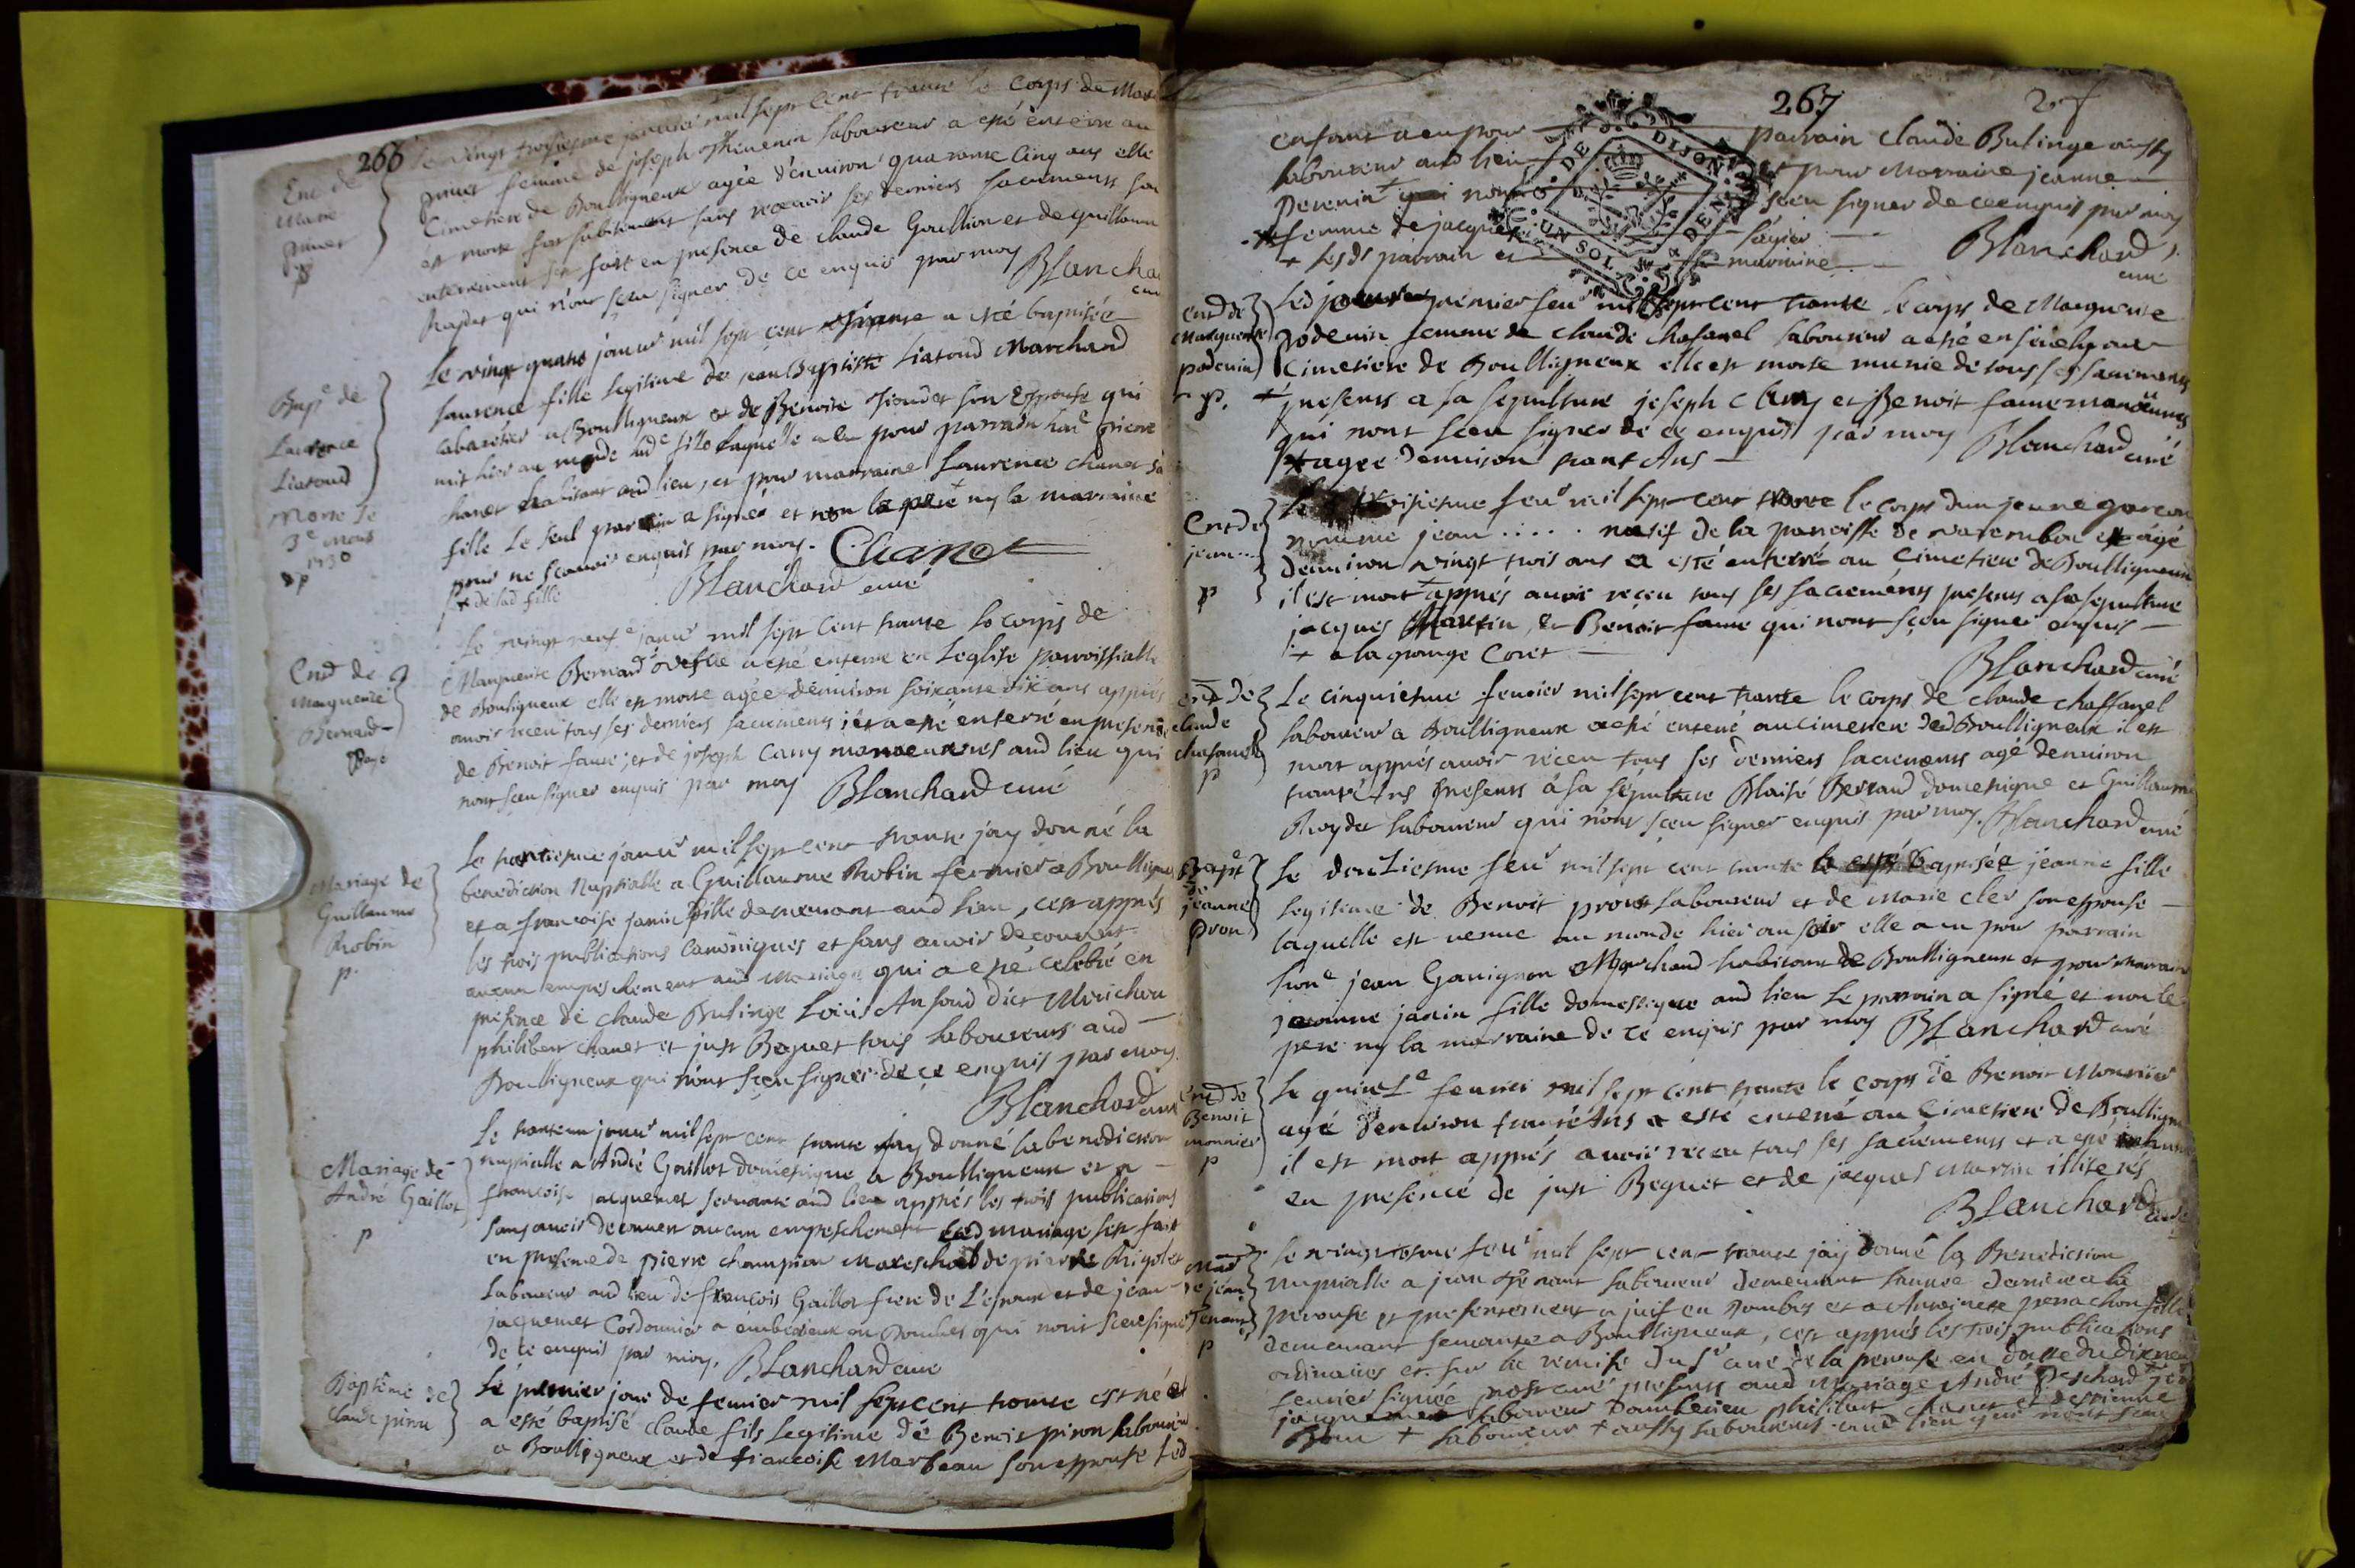 266
Ent de
Marie
p
Le vingt troisiesme janvier mil sept cent trante le corps de Mar
femme de joseph Thevenin laboureur a esté enterre au
Cimetiere de Boulligneux agée d'environ quarante cinq ans elle
est morte fort subitement sans recevoir ses derniers sacrements son
enterrement fait en presence de claude et de guillaume
qui n'ont sceu signer de ce enquis par moy Blancha
curé
Bapt de
Laurence
Liatoud
Morte le
3e mars
1730
p
Le vingt quatre janvr mil sept cent trante a esté baptisée
laurence fille legitime de jean Baptiste Liatoud Marchand
cabaretier a Boulligneux et de Benoite son Epouse qui
mit hier au monde lad fille laquelle a eu pour parrain
chanet habitant aud lieu, et pour marraine Laurence chanet sa
fille Le seul parrain a signé et non le pere + ny la marraine
pour ne sçavoir enquis par moy. Chanet
+ de lad fille Blanchard curé
Entt de
Marguerite
Bernard
Le vingt neufe janvr mil sept cent trante le corps de
Marguerite Bernard veufve a esté enterré en Leglise parroissialle
de Boulligneux elle est morte agée d'environ soixante dix ans apprés
avoir receu tous ses derniers sacrements et a esté enterré en presence
de Benoit faure, et de joseph Camy manoeuvres aud lieu qui
nont sceu signer enquis par moy Blanchard curé
Mariage de
Guillaume
Robin
p.
Le trantiesme janvr mil sept cent trante jay donné la
benediction Nuptialle a Guillaume Robin fermier a Boulligneux
et a francoise janin fille demeurant aud lieu, cest apprés
les trois publications canoniques et sans avoir decouvert
aucun empeschement aud Mariage qui a esté celebré en
presence de claude Bulinge Loüis Anfoud dict Morichon
philibert chanet et just Beguet tous laboureurs aud
Boulligneux qui n'ont sçeu signer de ce enquis par moy.
Blanchard curé
Mariage de
André Gaillot
p
Le trante un janvr mil sept cent trante jay donné la benediction
nuptialle a André Gaillot domestique a Boulligneux et a
francoise jacquemet servante aud lieu apprés les trois publications
sans avoir decouvert aucun empeschement led mariage sest fait
en presence de pierre champion Mareschal de pierre Rigolet
Laboureur aud lieu de françois Gaillot frere de L'epoux et de jean
jaquemet Cordonnier a amberieux en Dombes qui nont sceu signer
de ce enquis par moy. Blanchard curé
Baptême de
Claude piron
Le premier jour de fevrier mil sept cent trante est né et
a esté baptisé claude fils legitime de Benoit piron laboureur
a Boulligneux et de francoise Marbeau son epouse led
267
enfant a eu pour parrain claude Bulinge aussy
laboureur aud lieu et pour Marraine jeanne
Perenin + qui nont sceu signer de ce enquis par moy
+ femme de jacques
+ lesds parrain et marraine Blanchard
curé
G. DE DIJON
UN SOL 4 DEN
Entt de
Marguerite
podenin
p.
Led jour premier fevr mil sept cent trante le corps de Marguerite
podenin femme de claude chafanel laboureur a esté enseuely au
Cimetiere de Boulligneux elle est morte munie de tous ses sacrements
+ presents a sa sepulture joseph Camy et Benoit faure manoeuvres
qui nont sceu signer de ce enquis par moy Blanchard curé
+ agée denviron trante Ans
Entt de
jean ...
p
Le troisiesme fevr mil sept cent trante le corps dun jeune garcon
nommé jean .... natif de la paroisse de varembon agé
denviron vingt trois ans a esté enterré au Cimetiere de Boulligneux
il est mort + apprés avoir receu tous ses sacrements presents a sa sepulture
jacques Martin, et Benoit faure qui nont sçeu signer enquis
+ a la grange Coret
Blanchard curé
Entt de
claude
chafanel
p
Le cinquiesme fevrier mil sept cent trante le corps de claude chaffanel
laboureur a Boulligneux a esté enterré au cimetiere dud Boulligneux il est
mort apprés avoir receu tous ses derniers sacrements agé denviron
trante Ans presents à sa sépulture Blaise Berraud domestique et Guillaume
laboureur qui n'ont sceu signer enquis par moy. Blanchard curé
Bapt
de
jeanne
pron
Le douziesme fevr mil sept cent trante a esté Baptisée jeanne fille
legitime de Benoit pron laboureur et de Marie cler son epouse
laquelle est venue au monde hier au soir elle a eu pour parrain
hone jean Gavignon Marchand habitant de Boulligneux et pour marraine
jeanne janin fille domestique aud lieu le parrain a signé et non le
pere ny la marraine de ce enquis par moy Blanchard curé
Entt de
Benoit
monnier
p
Le quinze fevrier mil sept cent trante le corps de Benoit Monnier
agé d'environ trante Ans a esté enterré au Cimetiere de Boulligneux
il est mort apprés avoir receu tous ses sacrements et a esté inhumé
en presence de just Beguet et de jacques Martin illiterés
Blanchard curé
Mar
de jean
Tenant
p
Le vingtiesme fevr mil sept cent trante jay donné la Benediction
nuptialle a jean Tenant laboureur demeurant lannée derniere a la
perouse et presentement a juif en Dombes et a Antoinete perrachon fille
demeurant servante a Boulligneux, cest apprés les trois publications
ordinaires et sur la remise du sr curé de la perouse en datte du
fevrier signée presents aud Mariage André
jacquemet laboureur philibert chanet et destienne
+ laboureur + aussy laboureurs aud lieu qui nont sceu